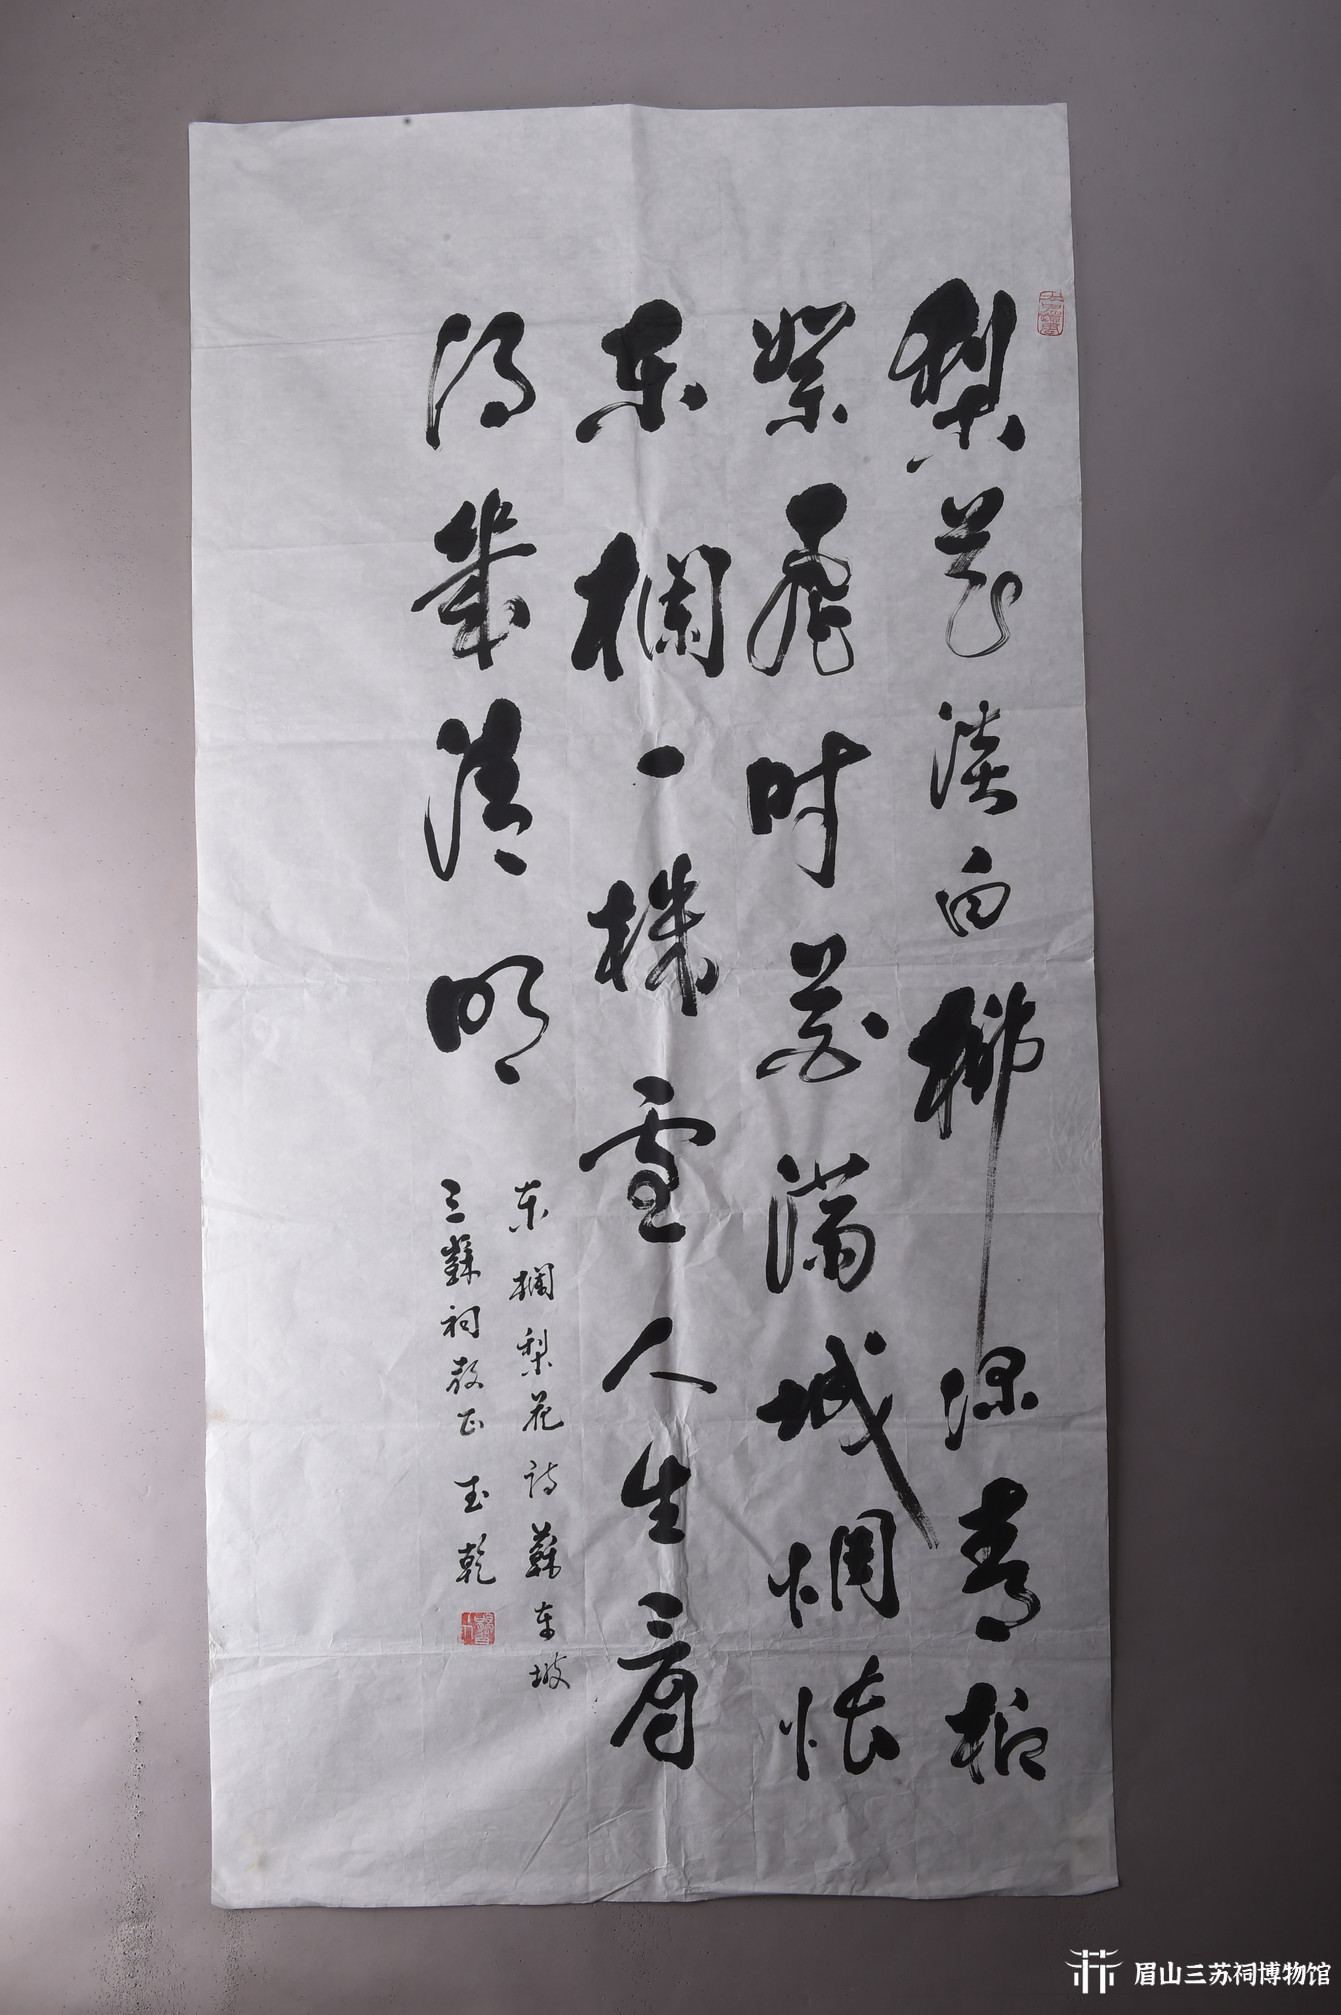 梨花淡白柳深青柳
絮飛时花满城惆悵
东欄一株雪人生看
得幾清明
东欄梨花诗蘇东坡
三蘇祠教正 玉乾
眉山三苏祠博物馆